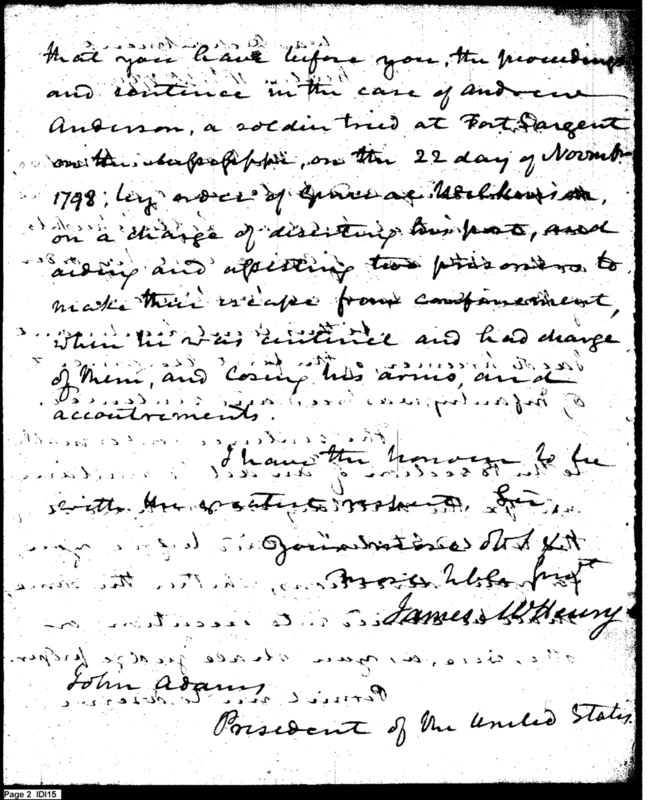 that you have before you, the proceedings
and sentence in the case of Andrew
Anderson, a soldier tried at Fort Sargent
on the Mississippi, on the 22 day of Novmbr
1798; by order of General Wilkinson,
on a charge of deserting his post, and
aiding and abetting two prisoners to
make their escape from confinement,
when he was centinel and had charge
of them, and losing his arms, and
accoutrements.
I have the honour to be
with the greatest respect, Sir,
Your obt &
most hble Sert
James McHenry
John Adams
President of the United States.
Page 2 IDI15